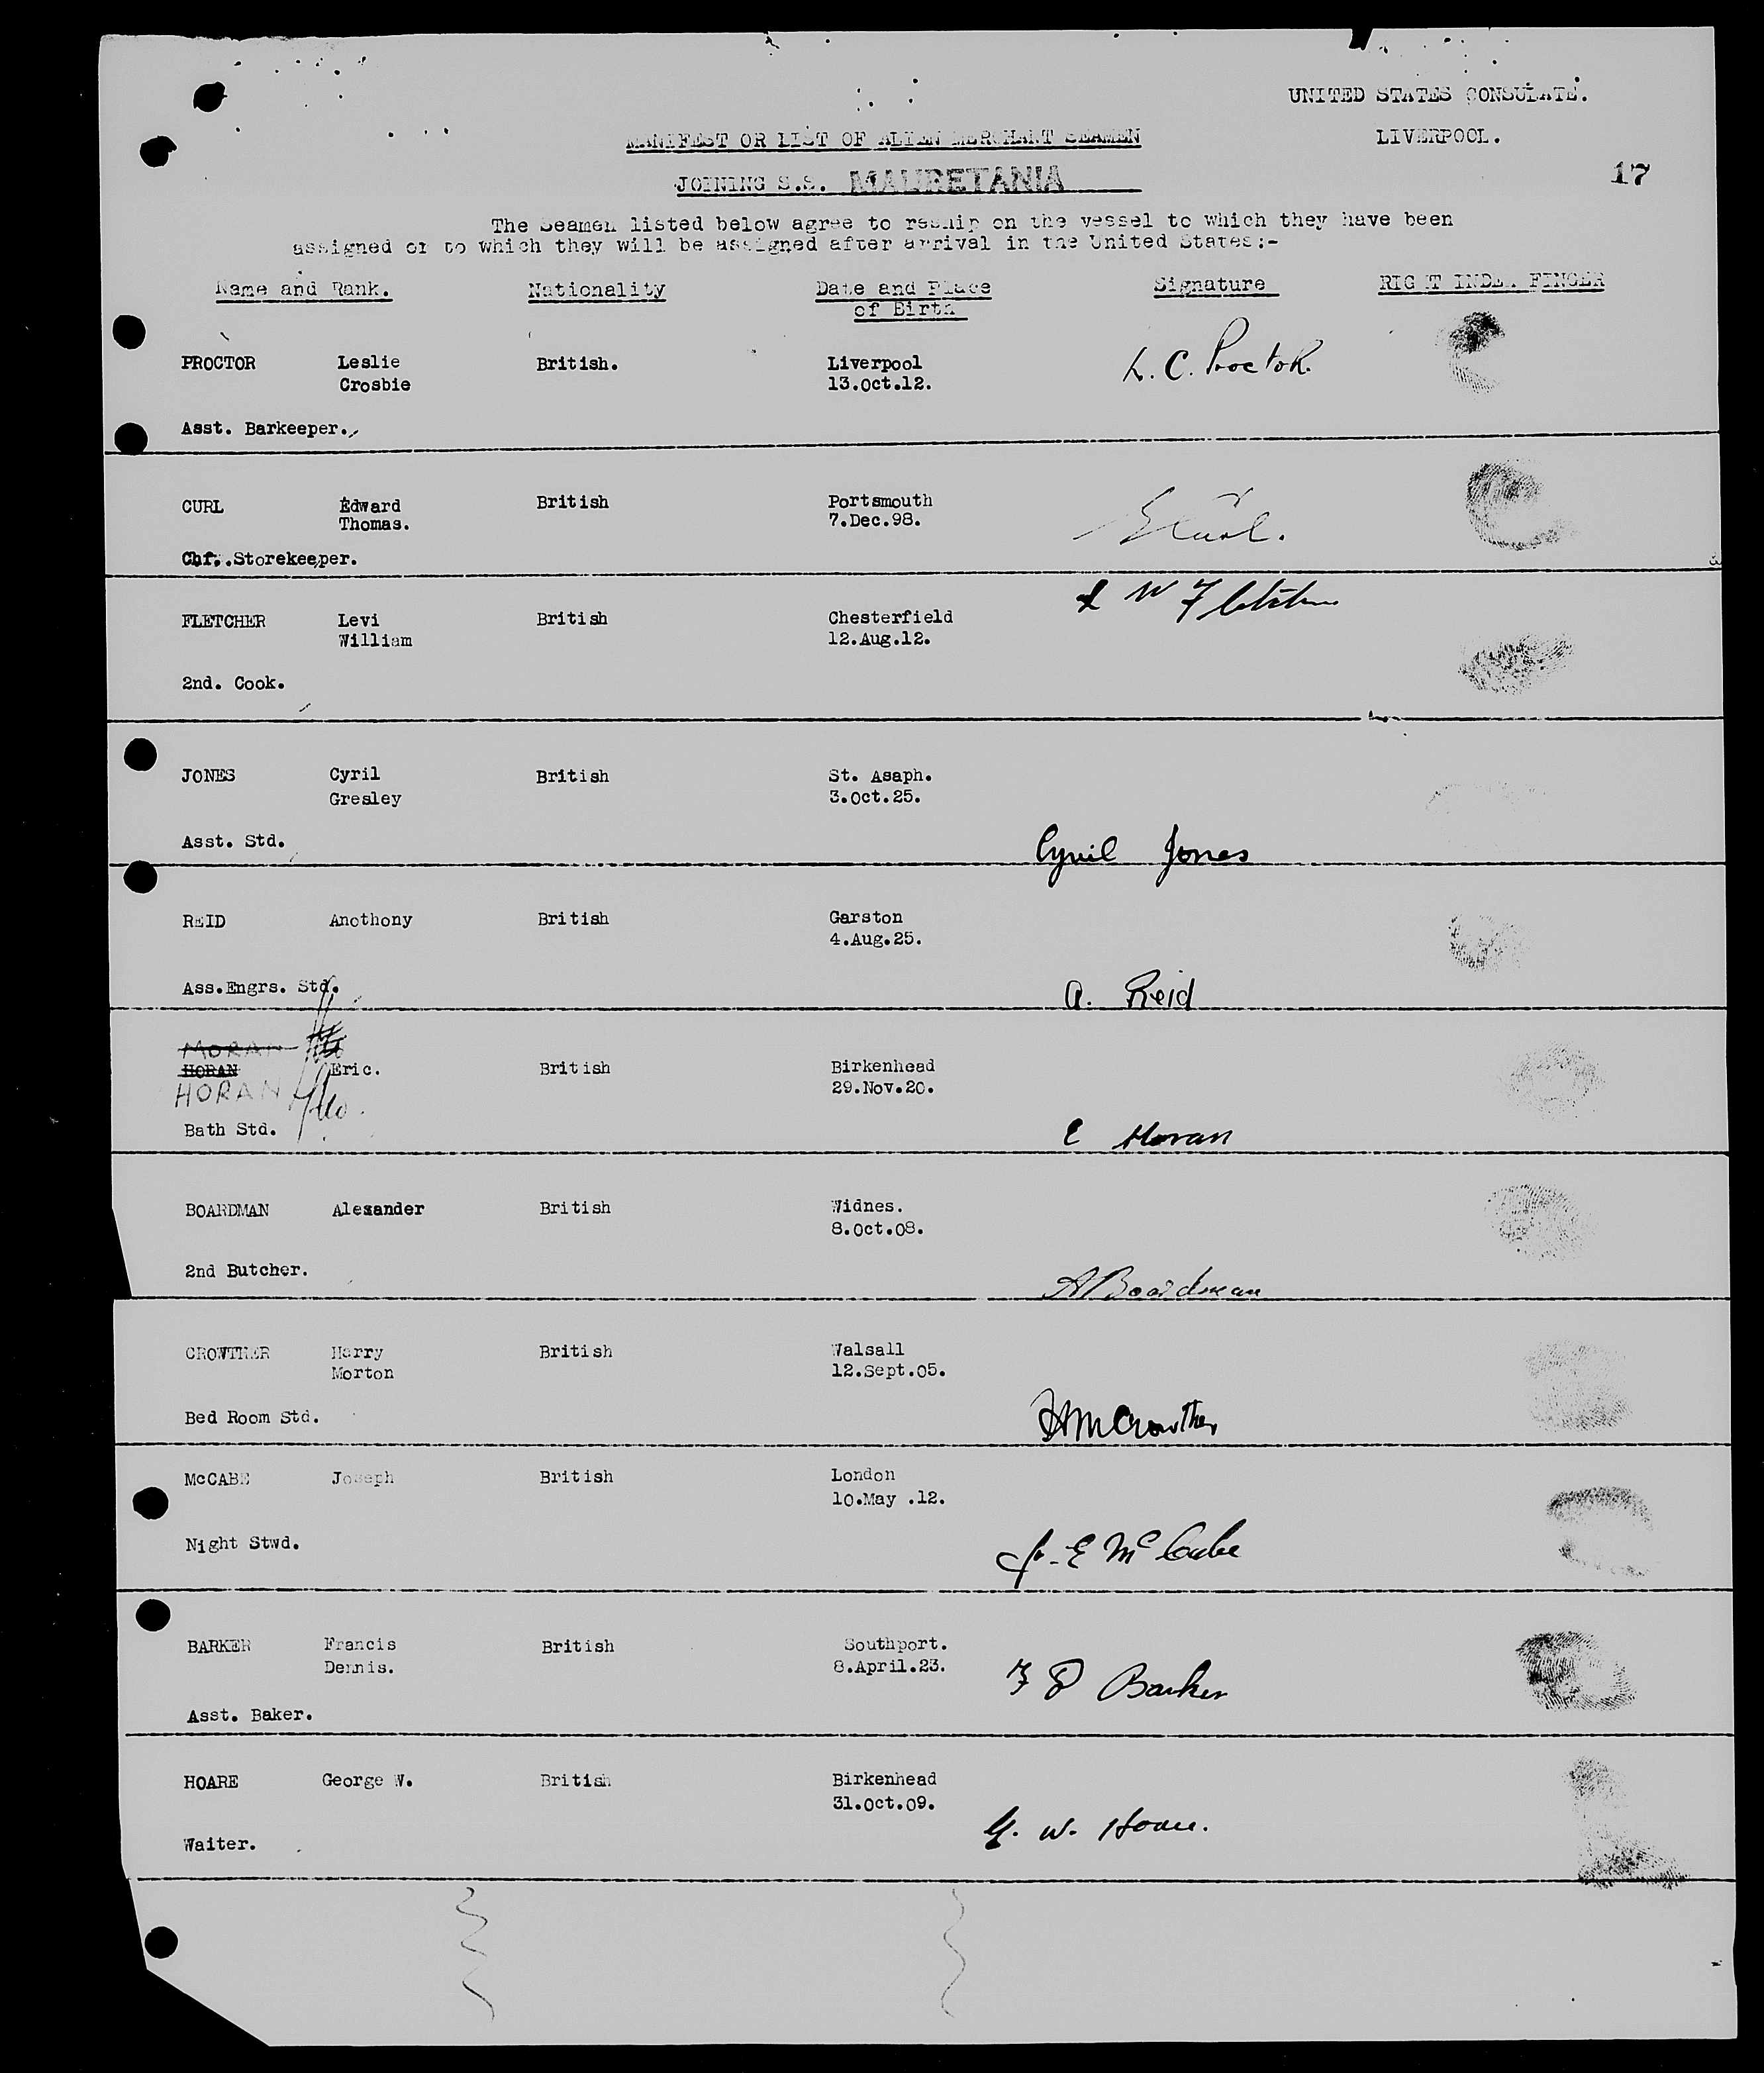 UNITED STATES CONSULATE.
LIVERPOOL.
17
MANIFEST OR LIST OF ALIEN MERCHANT SEAMEN
JOINING S.S. MAURETANIA
The Seamen listed below agree to reship on the vessel to which they have been
assigned or to which they will be assigned after arrival in the United States:-
Name and Rank. Nationality Date and Place Signature RIGHT INDEX FINGER
of Birth
PROCTOR Leslie British. Liverpool L. C. Proctor.
Crosbie 13.Oct.12.
Asst. Barkeeper.
CURL Edward British Portsmouth
Thomas. 7.Dec.98. E Curl.
Chf. Storekeeper.
L W Fletcher
FLETCHER Levi British Chesterfield
William 12.Aug.12.
2nd. Cook.
JONES Cyril British St. Asaph.
Gresley 3.Oct.25.
Asst. Std. Cyril Jones
REID Anothony British Garston
4.Aug.25.
Ass.Engrs. Std. A. Reid
MORAN
HORAN Eric. British Birkenhead
HORAN 29.Nov.20.
Bath Std. E Horan
BOARDMAN Alexander British Widnes.
8.Oct.08.
2nd Butcher. A Boardman
CROWTHER Harry British Walsall
Morton 12.Sept.05.
Bed Room Std. HMCrowther
McCABE Joseph British London
10.May .12.
Night Stwd. J. E McCabe
BARKER Francis British Southport.
Dennis. 8.April.23. F D Barker
Asst. Baker.
HOARE George W. British Birkenhead
31.Oct.09. G. W. Hoare.
Waiter.